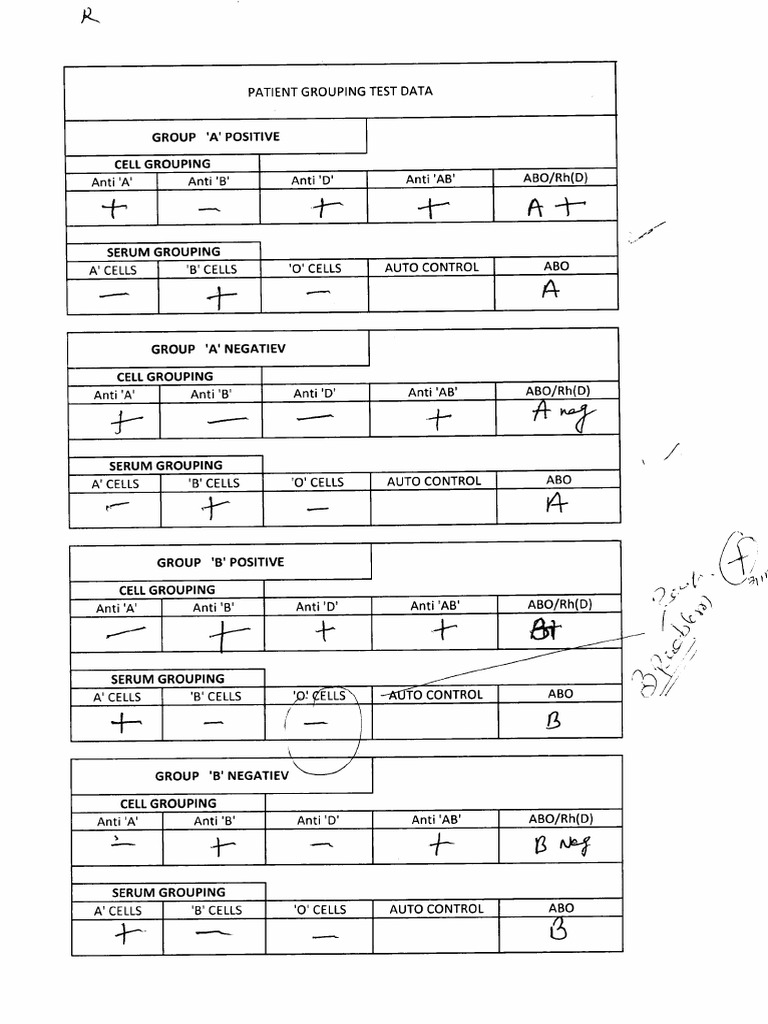 R
PATIENT GROUPING TEST DATA
GROUP 'A' POSITIVE
CELL GROUPING
Anti 'A' Anti 'B' Anti 'D' Anti 'AB' ABO/Rh(D)
+ − + + A +
SERUM GROUPING
A' CELLS 'B' CELLS 'O' CELLS AUTO CONTROL ABO
− + − A
GROUP 'A' NEGATIEV
CELL GROUPING
Anti 'A' Anti 'B' Anti 'D' Anti 'AB' ABO/Rh(D)
+ − − + A neg
SERUM GROUPING
A' CELLS 'B' CELLS 'O' CELLS AUTO CONTROL ABO
− + − A
GROUP 'B' POSITIVE
CELL GROUPING
Anti 'A' Anti 'B' Anti 'D' Anti 'AB' ABO/Rh(D)
− + + + B+
SERUM GROUPING
A' CELLS 'B' CELLS 'O' CELLS AUTO CONTROL ABO
+ − − B
+
GROUP 'B' NEGATIEV
CELL GROUPING
Anti 'A' Anti 'B' Anti 'D' Anti 'AB' ABO/Rh(D)
− + − + B Neg
SERUM GROUPING
A' CELLS 'B' CELLS 'O' CELLS AUTO CONTROL ABO
+ − − B